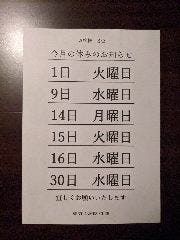 今月の休みのお知らせ
1日 火曜日
9日 水曜日
14日 月曜日
15日 火曜日
16日 水曜日
30日 水曜日
宜しくお願いいたします